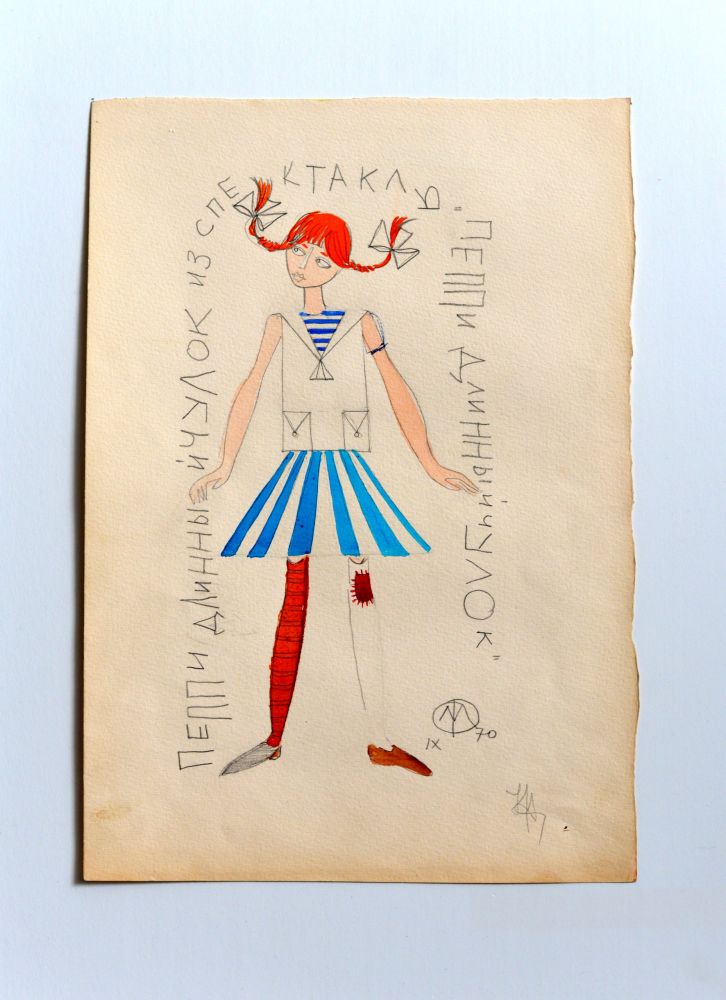 Пеппи длинный чулок из спектакль
"Пеппи длинный чулок"
IX 70